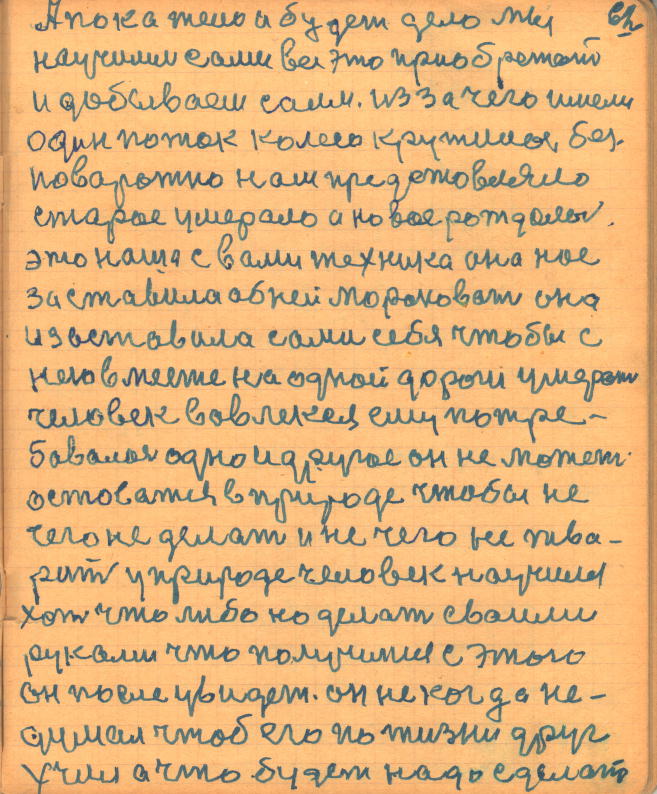 62
А пока тело а будет дело мы
научили сами все это приобретат
и добываем сами. из за чего имели
один поток колесо крутилось, без-
поваротно нам предстовляло
старое умерало а новое рождалось.
это наша с вами техника она нас
заставила об ней мороковат она
и заставила сами себя чтобы с
нею вместе на одной дороги умерат
человек вовлекся ему потре-
бавалося одно и другое он не может
остоватся в природе чтобы не
чего не делат и не чего не тва-
рит у природе человек научился
хот что либо но делат своими
руками что получится с этого
он после увидет. он некогда не-
думал чтоб его по жизни друг
учил а что будет надо сделат